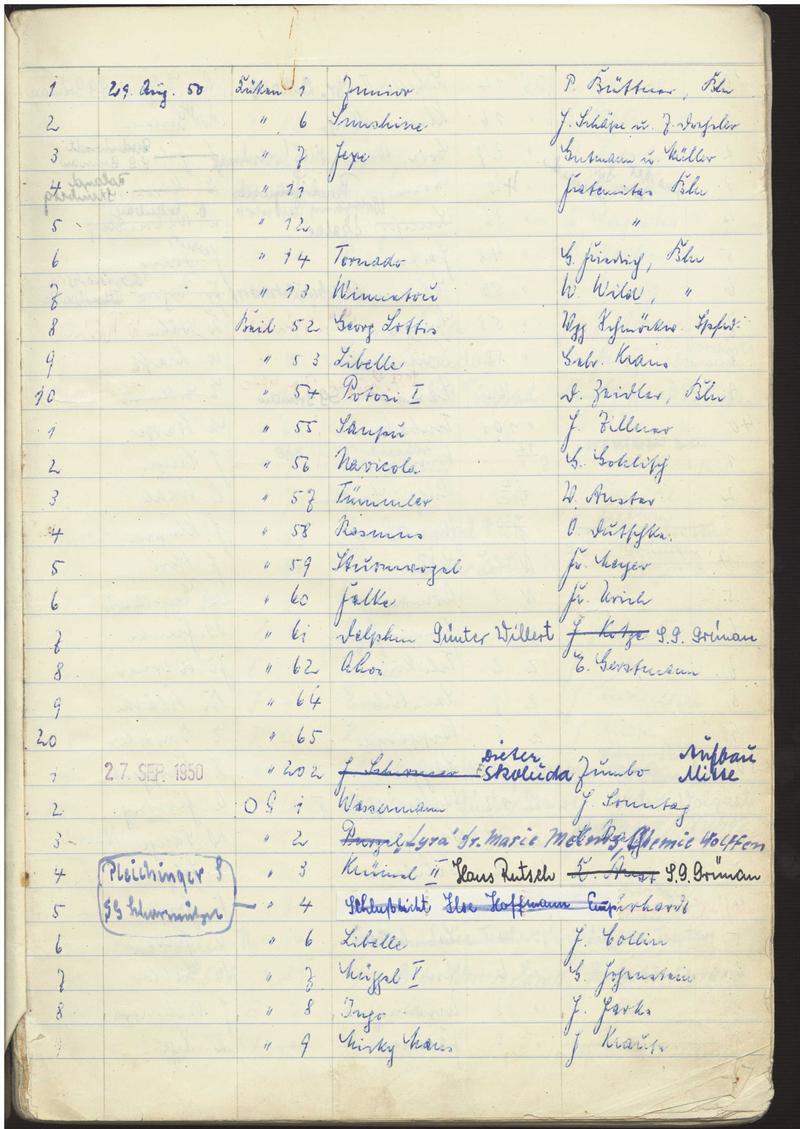 1 29. Aug. 50 Küken 1 Junior P. Büttner, Bln
2 " 6 Sunshine J. Schäpe u. J. Drechsler
3 " 7 Jepe Gutmann u. Müller
4 " 11 Fraternitas Bln
5 " 12 "
6 " 14 Tornado G. Friedrich, Bln
7 " 13 Winnetou W. Wild, "
8 Beil 52 Georg Lottis Wgg Schmöckw.
9 " 53 Libelle Gebr. Kraus
10 " 54 Potosi I D. Zeidler, Bln
1 " 55 Sanpu J. Zillmer
2 " 56 Navicola G. Goklisch
3 " 57 Tümmler W. Anster
4 " 58 Rasmus O. Dutschke.
5 " 59 Sturmvogel Fr. Meyer
6 " 60 Falke Fr. Urich
7 " 61 Delphin Günter Willert J. Kotze S.G. Grünau
8 " 62 Ahoi E. Gerstmann
9 " 64
20 " 65
Dieter Aufbau
1 27. SEP. 1950 " 202 J. Schirmer Skoluda Jumbo Mitte
2 OG 1 Wassermann J. Sonntag
3 " 2 "Lyra" Fr. Marie Chemie Wolffen
4 Pleichinger " 3 Krümel II Hans Rutsch S.G. Grünau
5 SG Scharmützel " 4 Schlußlicht Ilse Hoffmann
6 " 6 Libelle J. Collin
7 " 7 Müggel V G. Hohenstein
8 " 8 Ingo J. Jarke
9 " 9 Micky Maus J Krause